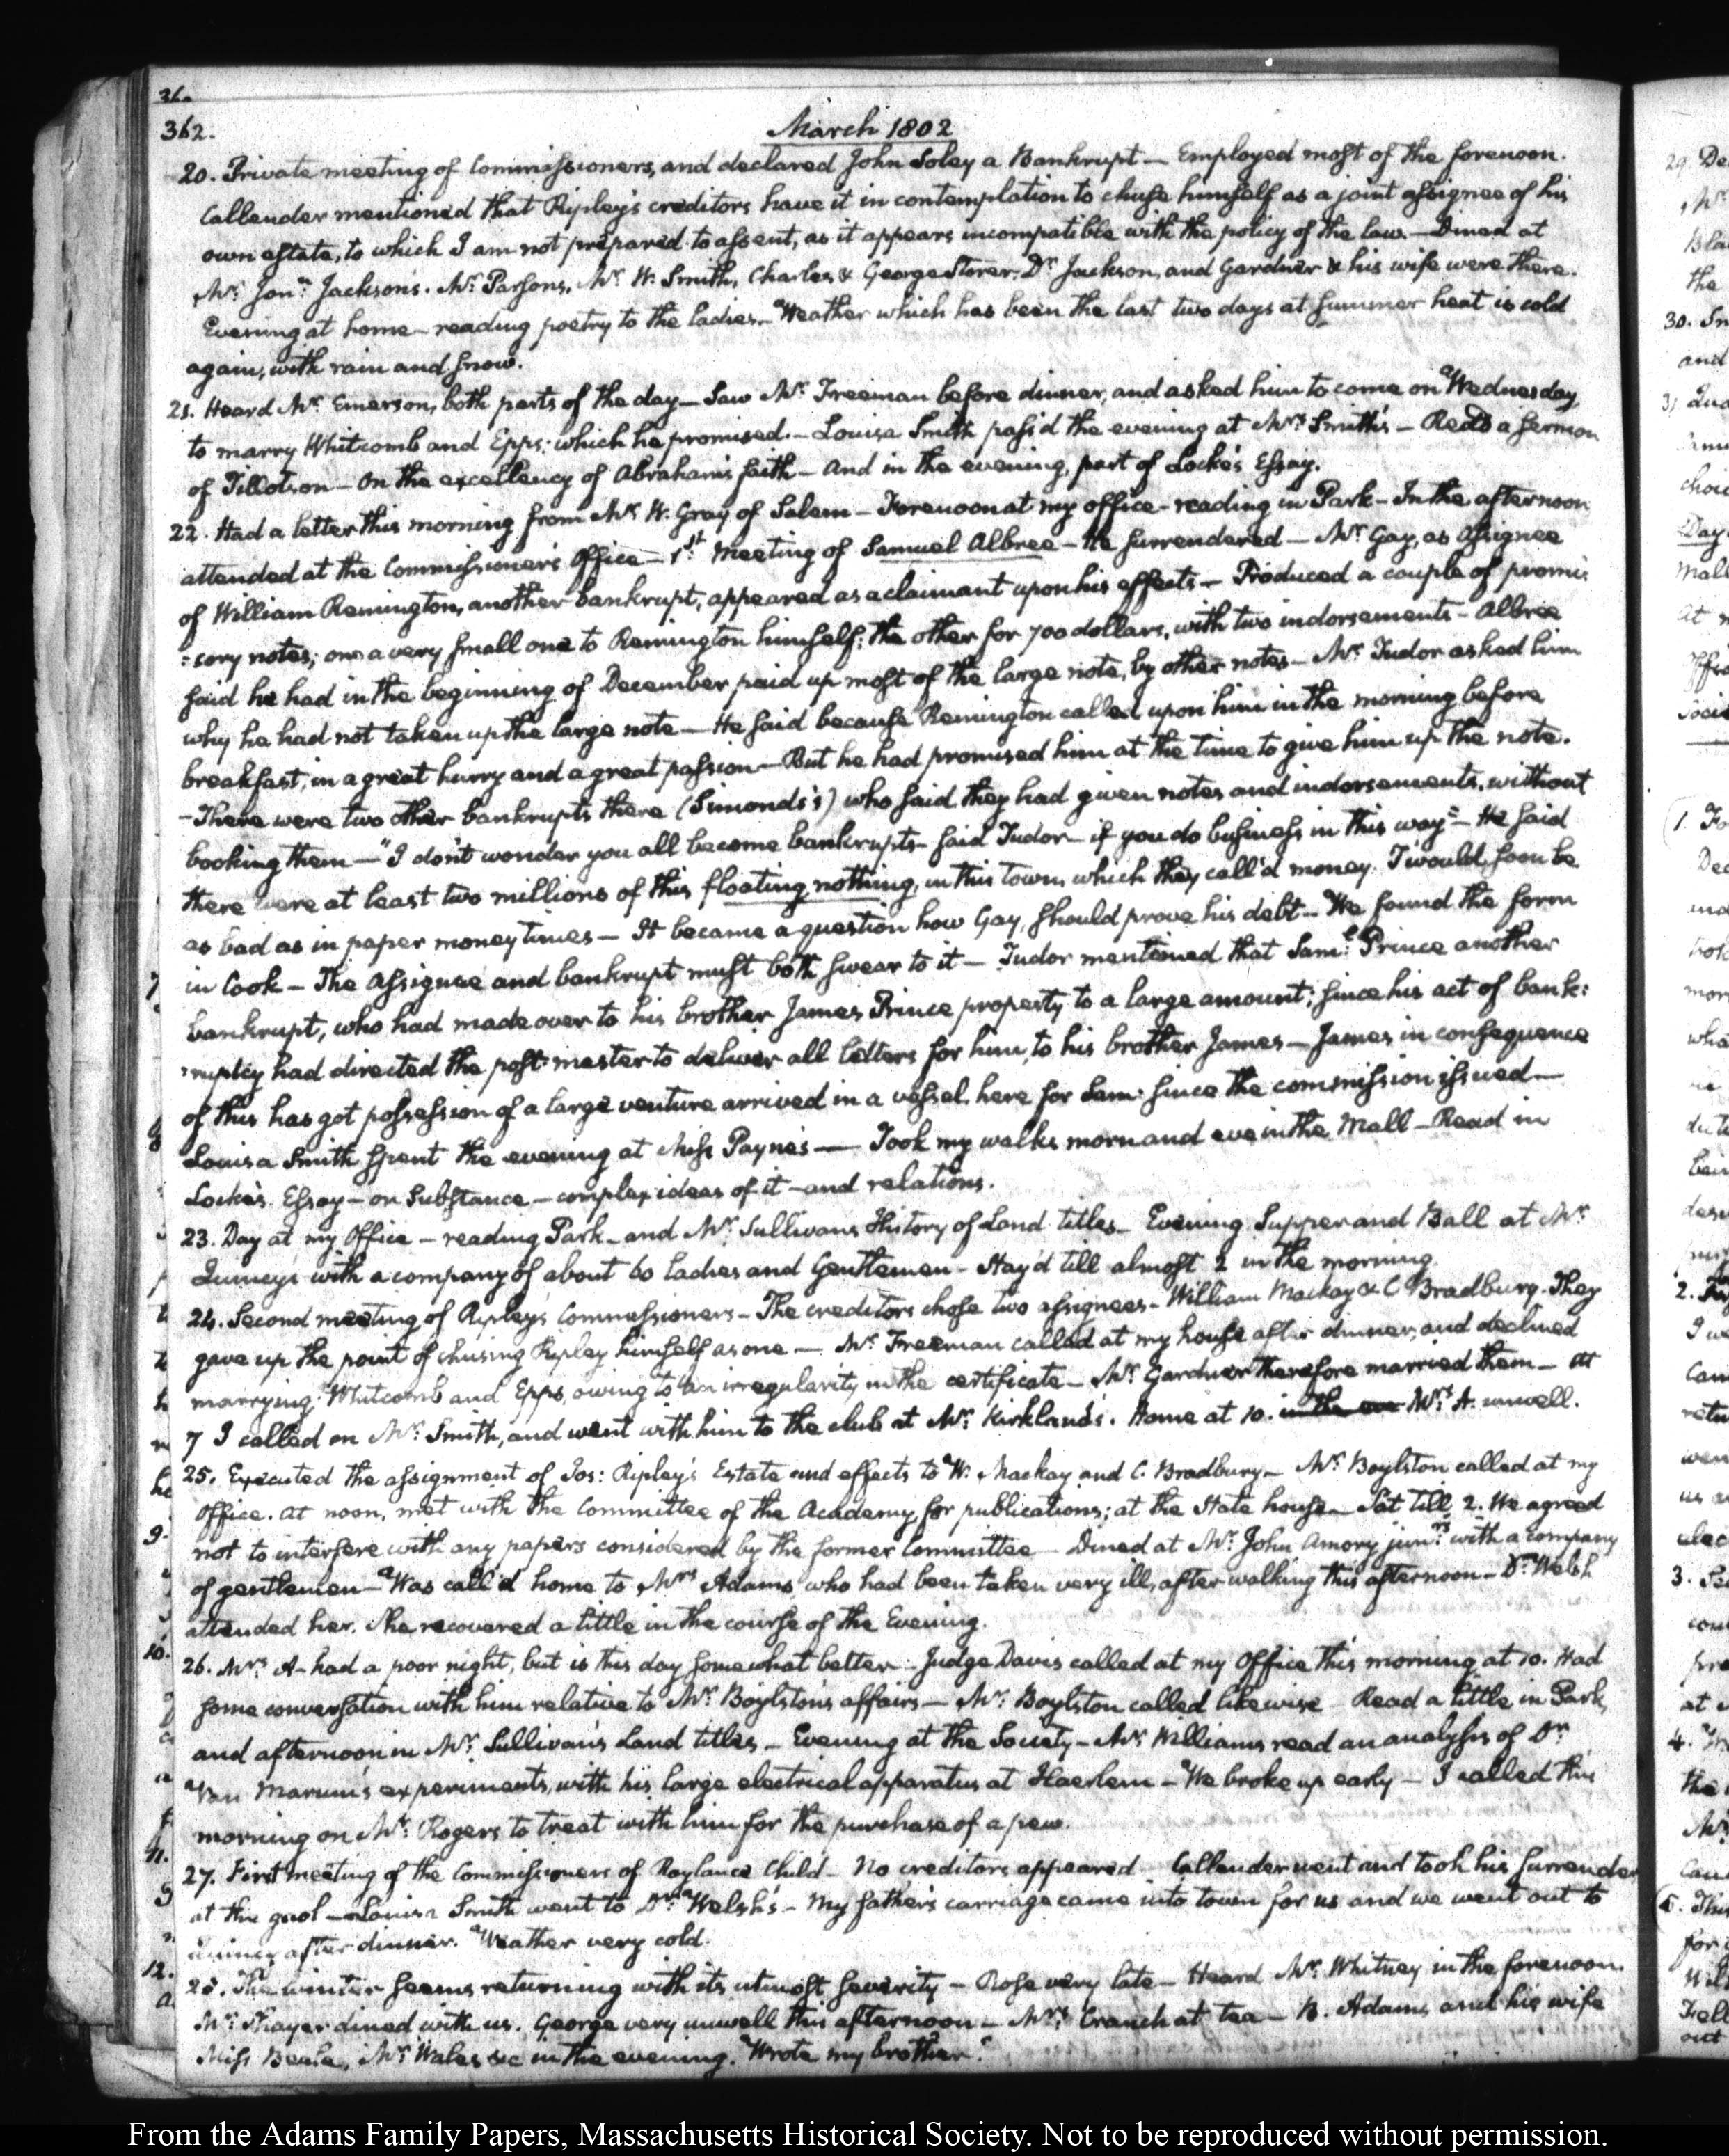 362.
March 1802
20. Private meeting of Commissioners, and declared John Soley a Bankrupt — Employed most of the forenoon.
Callender mentioned that Ripley's creditors have it in contemplation to chuse himself as a joint assignee of his
own estate, to which I am not prepared to assent, as it appears incompatible with the policy of the law. — Dined at
Mr. Jona. Jackson's. Mr. Parsons, Mr. W. Smith, Charles & George Storer. Dr. Jackson, and Gardner & his wife were there.
Evening at home — reading poetry to the ladies. — Weather which has been the last two days at summer heat is cold
again, with rain and snow.
21. Heard Mr. Emerson, both parts of the day — Saw Mr. Freeman before dinner, and asked him to come on Wednesday
to marry Whitcomb and Epps; which he promised. — Louisa Smith pass'd the evening at Mrs. Smith's — Read a sermon
of Tillotson — On the excellency of Abraham's faith — And in the evening, part of Locke's Essay.
22. Had a letter this morning from Mr. W. Gray of Salem — Forenoon at my office — reading in Park — In the afternoon
attended at the Commissioner's Office — 1st. Meeting of Samuel Albree — He surrendered — Mr. Gay, as assignee
of William Remington, another bankrupt, appeared as a claimant upon his effects — Produced a couple of promis
:sory notes; one a very small one to Remington himself; the other for 700 dollars, with two indorsements — Albree
said he had in the beginning of December paid up most of the large note, by other notes — Mr. Tudor asked him
why he had not taken up the large note — He said because Remington called upon him in the morning before
breakfast, in a great hurry and a great passion — But he had promised him at the time to give him up the note.
— There were two other bankrupts there (Simonds's) who said they had given notes and indorsements, without
booking them — "I don't wonder you all become bankrupts — said Tudor — if you do business in this way" — He said
there were at least two millions of this floating nothing, in this town, which they call'd money. T'would soon be
as bad as in paper money times — It became a question how Gay, should prove his debt — We found the form
in Cook — The Assignee and bankrupt must both swear to it — Tudor mentioned that Saml. Prince another
bankrupt, who had made over to his brother James Prince property to a large amount; since his act of bank:
:ruptcy had directed the post-master to deliver all letters for him, to his brother James — James in consequence
of this has got possession of a large venture arrived in a vessel, here for Sam: since the commission issued —
Louisa Smith spent the evening at Miss Payne's — Took my walks morn and eve in the Mall — Read in
Locke's Essay — on Substance — complex ideas of it — and relations.
23. Day at my Office — reading Park — and Mr. Sullivan's History of Land titles — Evening Supper and Ball at Mr.
Quincy's with a company of about 60 ladies and Gentlemen — Stay'd till almost 2 in the morning.
24. Second meeting of Ripley's Commissioners — The creditors chose two assignees — William Mackay & C Bradbury. They
gave up the point of chusing Ripley himself as one — Mr. Freeman called at my house after dinner, and declined
marrying Whitcomb and Epps, owing to an irregularity in the certificate — Mr. Gardner therefore married them — At
7 I called on Mr. Smith, and went with him to the club at Mr. Kirkland's. Home at 10. in the eve Mrs. A. unwell.
25. Executed the assignment of Jos: Ripley's Estate and effects to W. Mackay and C. Bradbury — Mr. Boylston called at my
Office. At noon, met with the Committee of the Academy, for publications; at the State house — Sat till 2. We agreed
not to interfere with any papers considered by the former Committee — Dined at Mr. John Amory junr's. with a company
of gentlemen — Was call'd home to Mrs. Adams, who had been taken very ill, after walking this afternoon — Dr. Welsh
attended her. She recovered a little in the course of the Evening.
26. Mrs. A — had a poor night, but is this day somewhat better — Judge Davis called at my Office this morning at 10. Had
some conversation with him relative to Mr. Boylston's affairs — Mr. Boylston called likewise — Read a little in Park,
and afternoon in Mr. Sullivan's Land titles — Evening at the Society — Mr. Williams read an analysis of Dr.
Van Marum's experiments, with his large electrical apparatus at Haerlem — We broke up early — I called this
morning on Mr. Rogers to treat with him for the purchase of a pew.
27. First meeting of the Commissioners of Roylance Child — No creditors appeared — Callender went and took his surrender
at the gaol — Louisa Smith went to Dr. Welsh's — My father's carriage came into town for us and we went out to
Quincy after dinner. Weather very cold.
28. The winter seems returning with its utmost severity — Rose very late — Heard Mr. Whitney in the forenoon.
Mr. Thayer dined with us. George very unwell this afternoon — Mrs. Cranch at tea — B. Adams and his wife
Miss Beale, Mr. Wales &c in the evening. Wrote my brother.
From the Adams Family Papers, Massachusetts Historical Society. Not to be reproduced without permission.